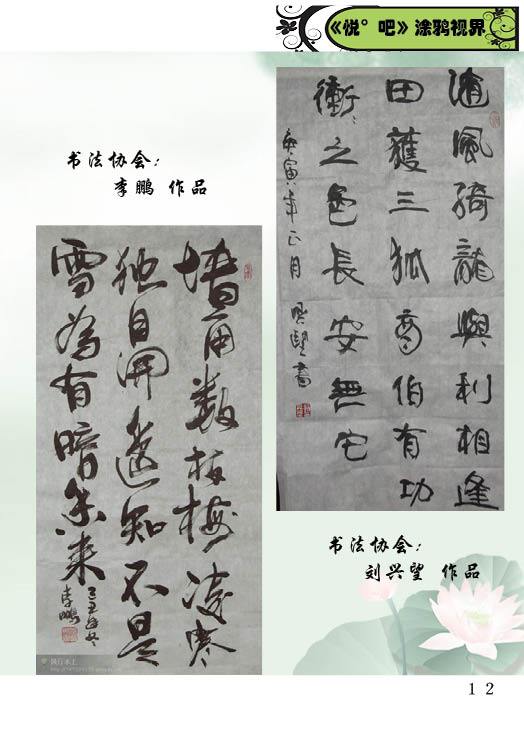 《悦°吧》涂鸦视界
书法协会：
李鹏 作品
墙角数枝梅凌寒
独自開遥知不是
雪為有暗香来
李鹏
随風騎龍與利相逢
田獲三狐商伯有功
衝〻之邑長安無它
庚寅年正月 興望書
书法协会：
刘兴望 作品
12